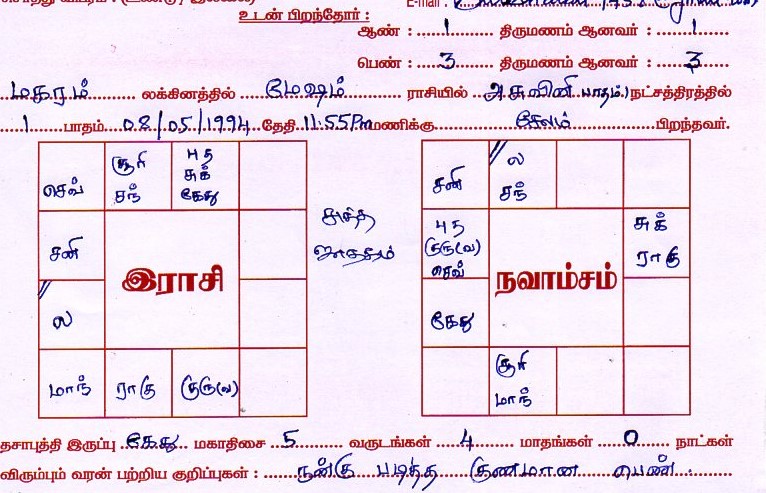 உடன் பிறந்தோர் :
E-mail :
ஆண் : 1 திருமணம் ஆனவர் : 1
பெண் : 3 திருமணம் ஆனவர் : 3
மகரம் லக்கினத்தில் மேஷம் ராசியில் அசுவினி நட்சத்திரத்தில்
1 பாதம் 08/05/1994 தேதி 11:55PM மணிக்கு சேலம் பிறந்தவர்.
செவ்
சூரி
சந்
புத
சுக்
கேது
சனி
இராசி
ல
மாந்
ராகு
குரு(வ)
சுத்த
ஜாதகம்
சனி
ல
சந்
புத
குரு(வ)
செவ்
நவாம்சம்
சுக்
ராகு
கேது
சூரி
மாந்
தசாபுத்தி இருப்பு கேது மகாதிசை 5 வருடங்கள் 4 மாதங்கள் 0 நாட்கள்
விரும்பும் வரன் பற்றிய குறிப்புகள் : நன்கு படித்த குணமான பெண்.